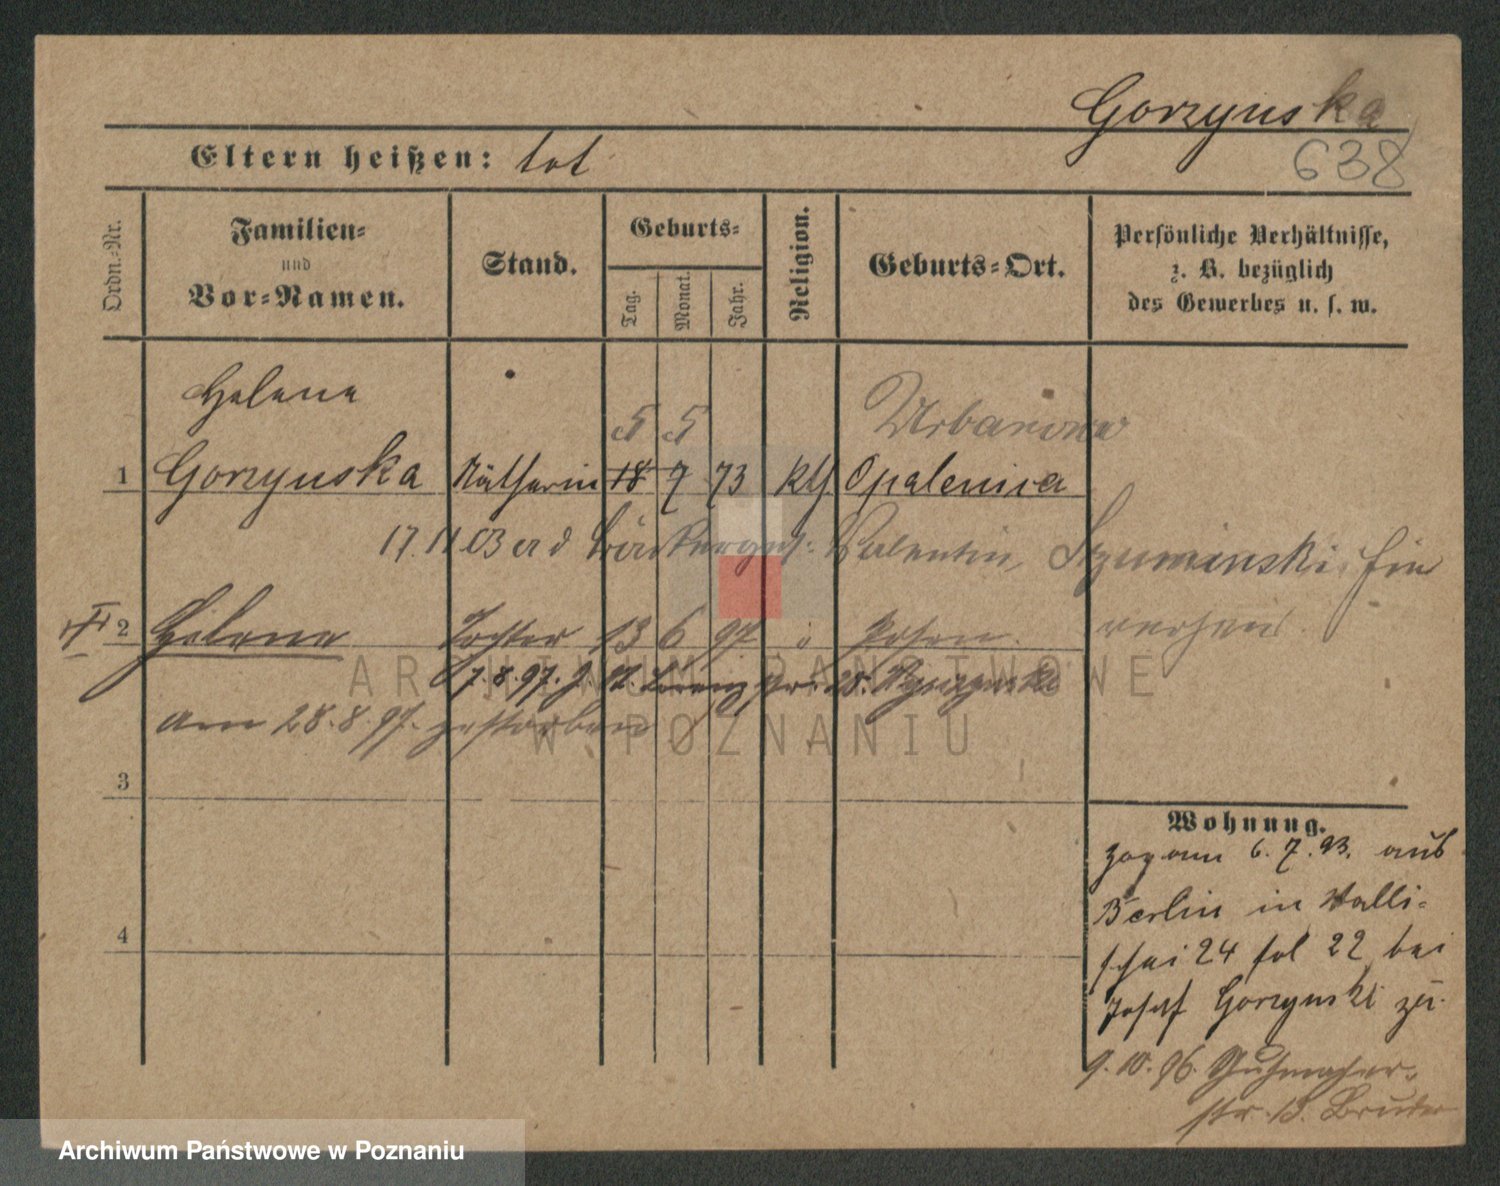 Gorzynska
638
Eltern heißen: tot
Ordn.-Nr.
Familien- und Vor-Namen.
Stand.
Geburts-
Tag.
Monat.
Jahr.
Religion.
Geburts-Ort.
Persönliche Verhältnisse,
z. B. bezüglich
des Gewerbes u. s. w.
Helene
5 5 Urbanowo
1 Gorzynska Nätherin 18 7 73 kth Opalenica
17.11.03 Valentin Szuminski
2 Helene Tochter 13 6 97 Posen
7.8.97.
am 28.8.97. gestorben
3
4
Wohnung.
Zog am 6.7.93. aus
Berlin in Walli-
schei 24 fol 22 bei
Josef Gorzynski zu
9.10.96. Schuhmacher-
str. 13. Bruder
ARCHIWUM PAŃSTWOWE
W POZNANIU
Archiwum Państwowe w Poznaniu